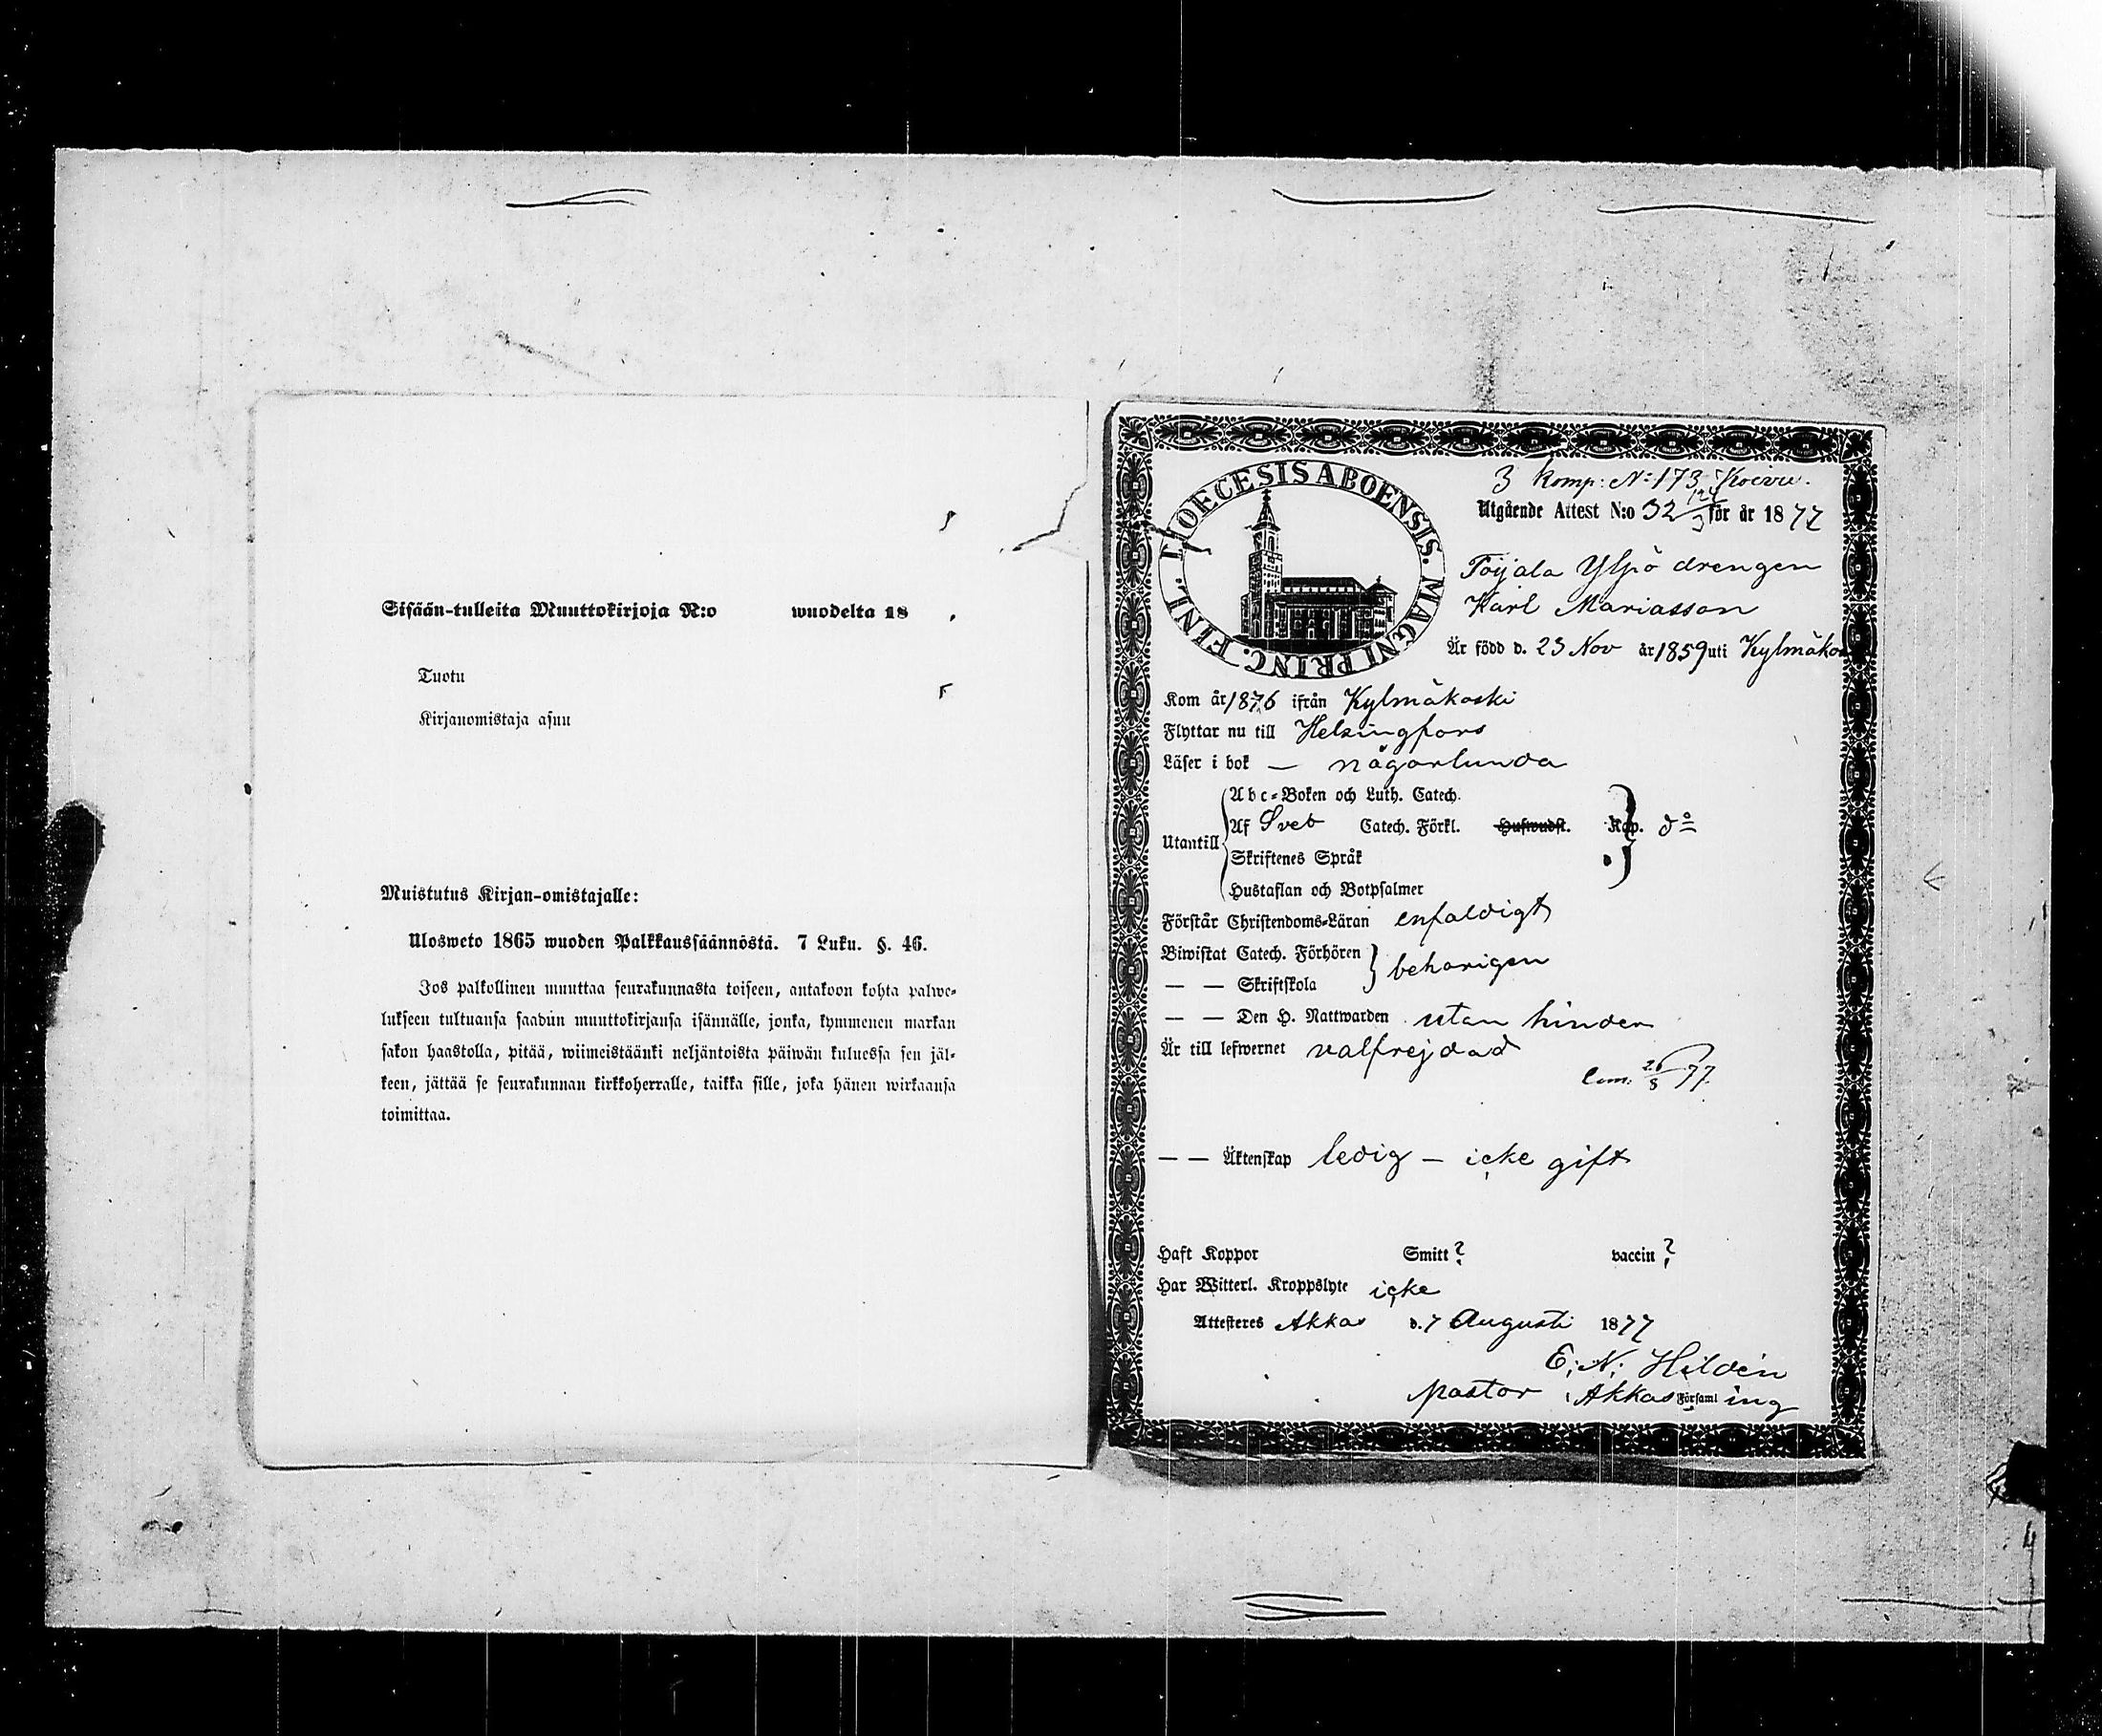 Sisään-tulleita Muuttokirjoja N:o wuodelta 18 .
Tuotu
Kirjanomistaja asuu
Muistutus Kirjan-omistajalle:
Ulosweto 1865 wuoden Palkkaussäännöstä. 7 Luku. §. 46.
Jos palkollinen muuttaa seurakunnasta toiseen, antakoon kohta palwe-
lukseen tultuansa saadun muuttokirjansa isännälle, jonka, kymmenen markan
sakon haastolla, pitää, wiimeistäänki neljäntoista päiwän kuluessa sen jäl-
keen, jättää se seurakunnan kirkkoherralle, taikka sille, joka hänen wirkaansa
toimittaa.
DIOECESIS ABOENSIS. MAGNI PRINC. FINL.
3 Komp: N: 173 Koivu.
Utgående Attest N:o 32 för år 1877
Toijala Yljö drengen
Karl Mariasson
Är född d. 23 Nov år 1859 uti Kylmäko
Kom år 1876 ifrån Kylmäkoski
Flyttar nu till Helsingfors
Läser i bok — någorlunda
Utantill
Abc-Boken och Luth. Catech.
Af Sveb Catech. Förkl. Hufwudst. Kap. do
Skriftenes Språk
Hustaflan och Botpsalmer
Förstår Christendoms-Läran enfaldigt
Biwistat Catech. Förhören
behörigen
— — Skriftskola
— — Den H. Nattwarden utan hinder
Är till lefwernet välfrejdad
Com. 26/8 77.
— — Äktenskap ledig — icke gift
Haft Koppor Smitt ? vaccin ?
Har Witterl. Kroppslyte icke
Attesteras Akkas d. 7 Augusti 1877
E. N. Hildén
Pastor i Akkas Församl ing